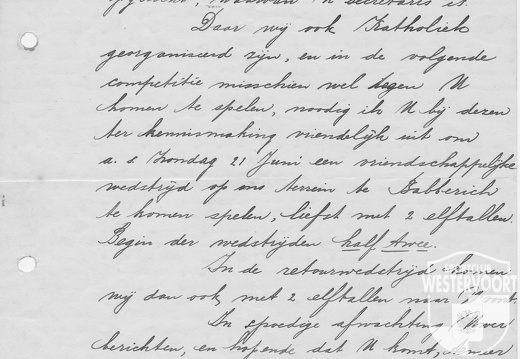 opgericht, waarvan 'k secretaris is.
Daar wij ook Katholiek
georganiseerd zijn, en in de volgende
competitie misschien wel tegen U
komen te spelen, noodig ik U bij dezen
ter kennismaking vriendelijk uit om
a. s. Zondag 21 Juni een vriendschappelijke
wedstrijd op ons terrein te Babberich
te komen spelen, liefst met 2 elftallen.
Begin der wedstrijden half twee.
In de retourwedstrijd komen
wij dan ook met 2 elftallen naar
In spoedige afwachting Uwer
berichten, en hopende dat U komt, is meer
SPORTCLUB
WESTERVOORT